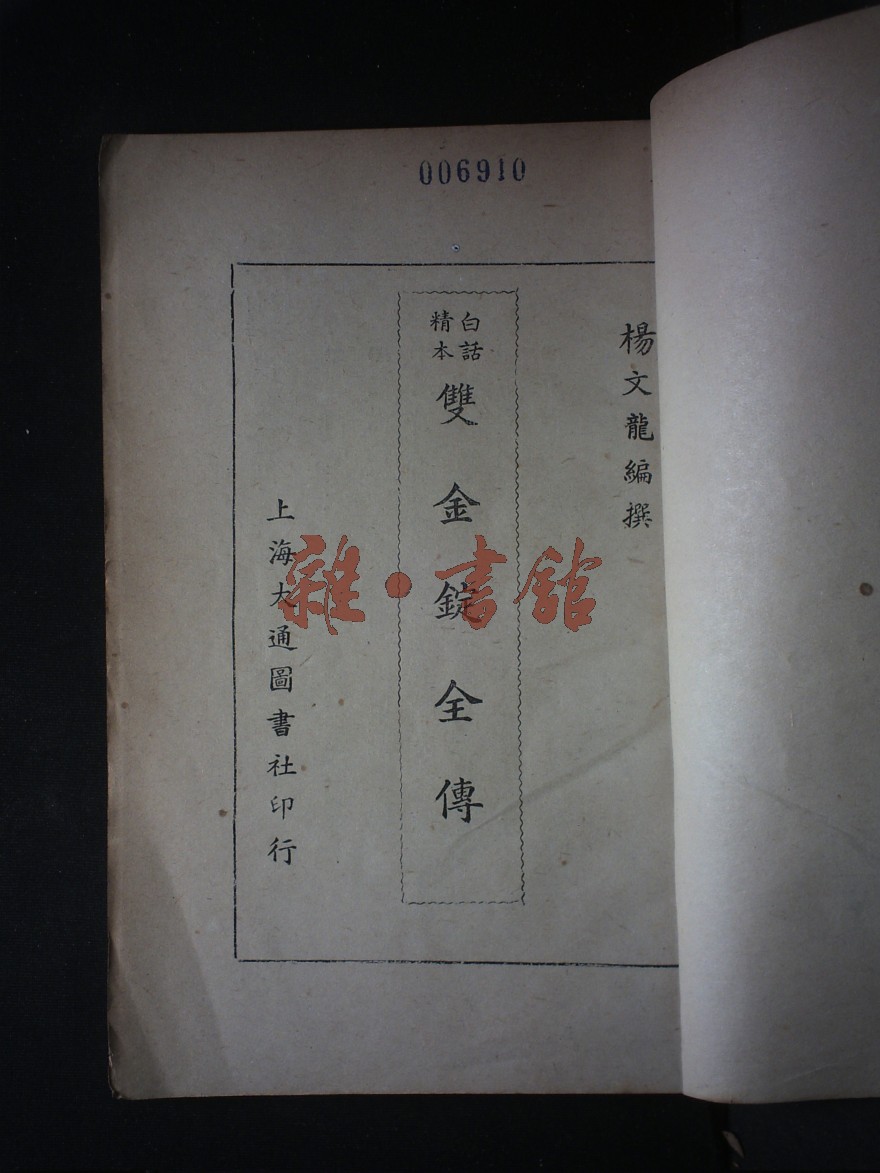 006910
楊文龍編撰
白話
精本
雙金錠全傳
上海大通圖書社印行
雜·書館